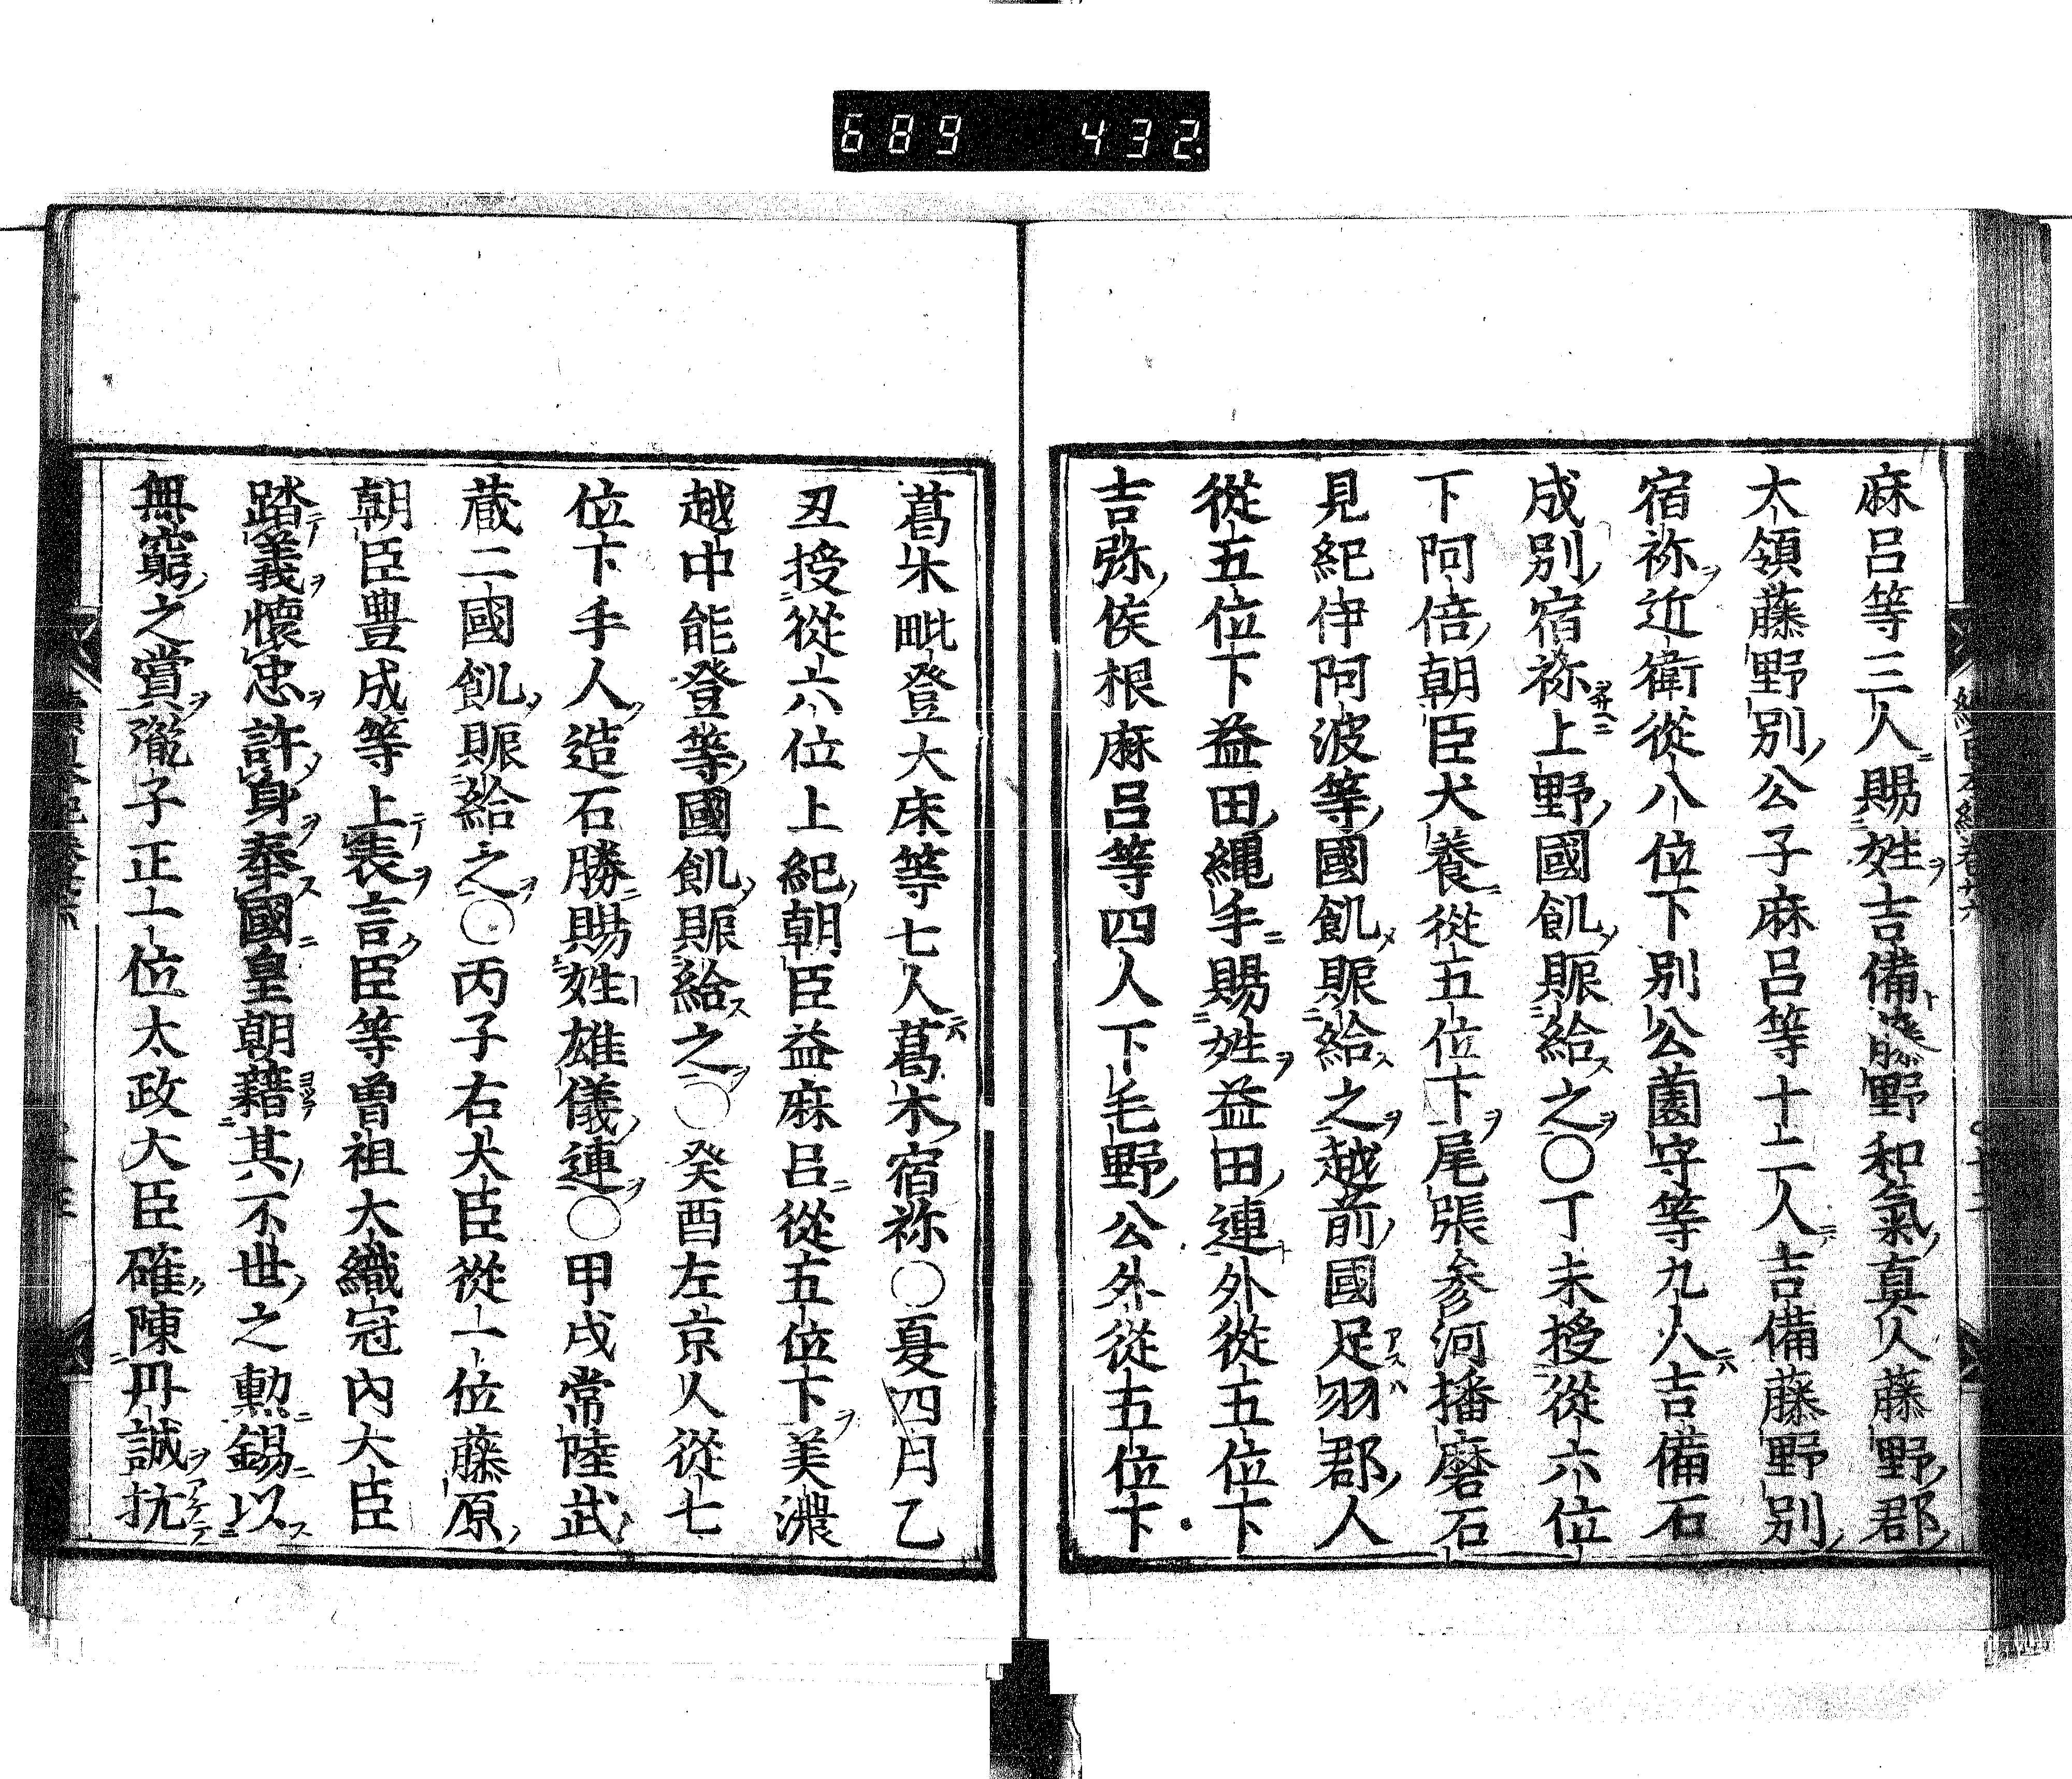 689 432
麻呂等三人賜姓吉備藤野和氣真人藤野郡
大領藤野別公子麻呂等十二人吉備藤野別
宿祢近衛從八位下別公薗守等九人吉備石
成別宿祢上野國飢賑給之○丁未授從六位
下阿倍朝臣犬養從五位下尾張參河播磨石
見紀伊阿波等國飢賑給之越前國足羽郡人
從五位下益田繩手賜姓益田連外從五位下
吉弥侯根麻呂等四人下毛野公外從五位下
葛木毗登大床等七人葛木宿祢○夏四月乙
丑授從六位上紀朝臣益麻呂從五位下美濃
越中能登等國飢賑給之○癸酉左京人從七
位下手人造石勝賜姓雄儀連○甲戌常陸武
蔵二國飢賑給之○丙子右大臣從一位藤原
朝臣豊成等上表言臣等曽祖大織冠內大臣
踏義懷忠許身奉國皇朝藉其不世之勲錫以
無窮之賞瀧子正一位太政大臣確陳丹誠抗